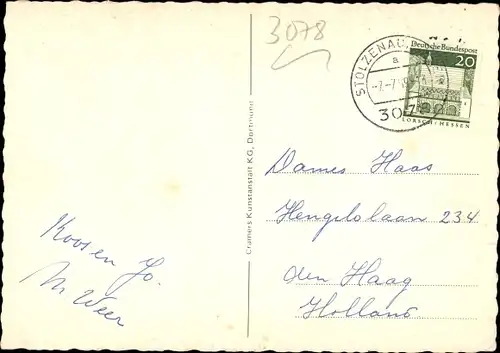 3078
STOLZENAU
a
-7.-7
3078
Deutsche Bundespost
20
LORSCH / HESSEN
Cramers Kunstanstalt KG, Dortmund
Dames Haas
Hengelolaan 234
den Haag
Holland.
Koos en Jo.